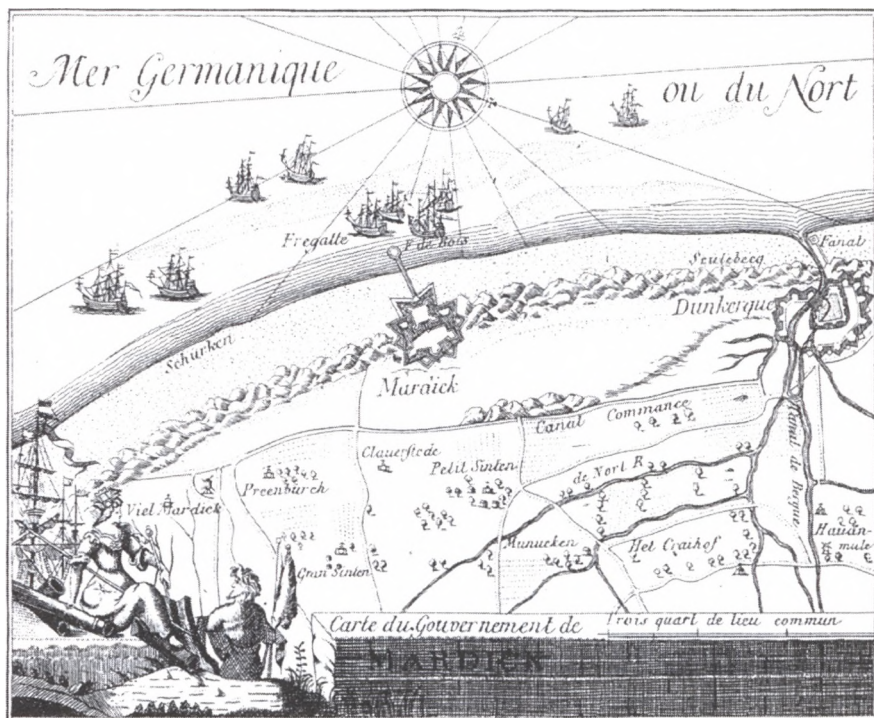 Mer Germanique
ou du Nort
Fregatte
F. de Bois
Fanal
Scuisbecq
Dunkerque
Schurken
Mardick
Canal Commance
Clauerstede
Petit Sinten
de Nort R
Canal de Bergue
Preenburch
Viel Mardick
Munucken
Het Craihof
Hauan-
mule
Gran Sinten
Carte du Gouvernement de
Trois quart de lieu commun
MARDICK